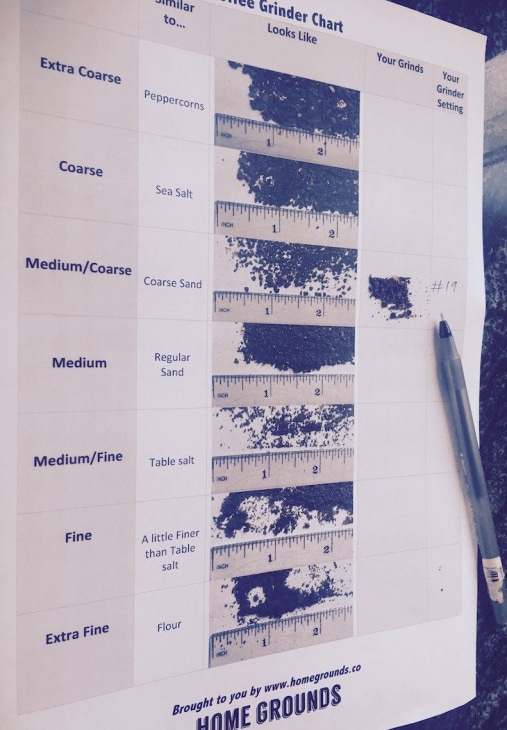 Grinder Chart
Similar
to...
Looks Like
Your Grinds
Your
Grinder
Setting
Extra Coarse
Peppercorns
INCH 1 2
Coarse
Sea Salt
INCH 1 2
Medium/Coarse
Coarse Sand
INCH 1 2
#19
Medium
Regular
Sand
INCH 1 2
Medium/Fine
Table salt
INCH 1 2
Fine
A little Finer
than Table
salt
INCH 1 2
Extra Fine
Flour
INCH 1 2
Brought to you by www.homegrounds.co
HOME GROUNDS